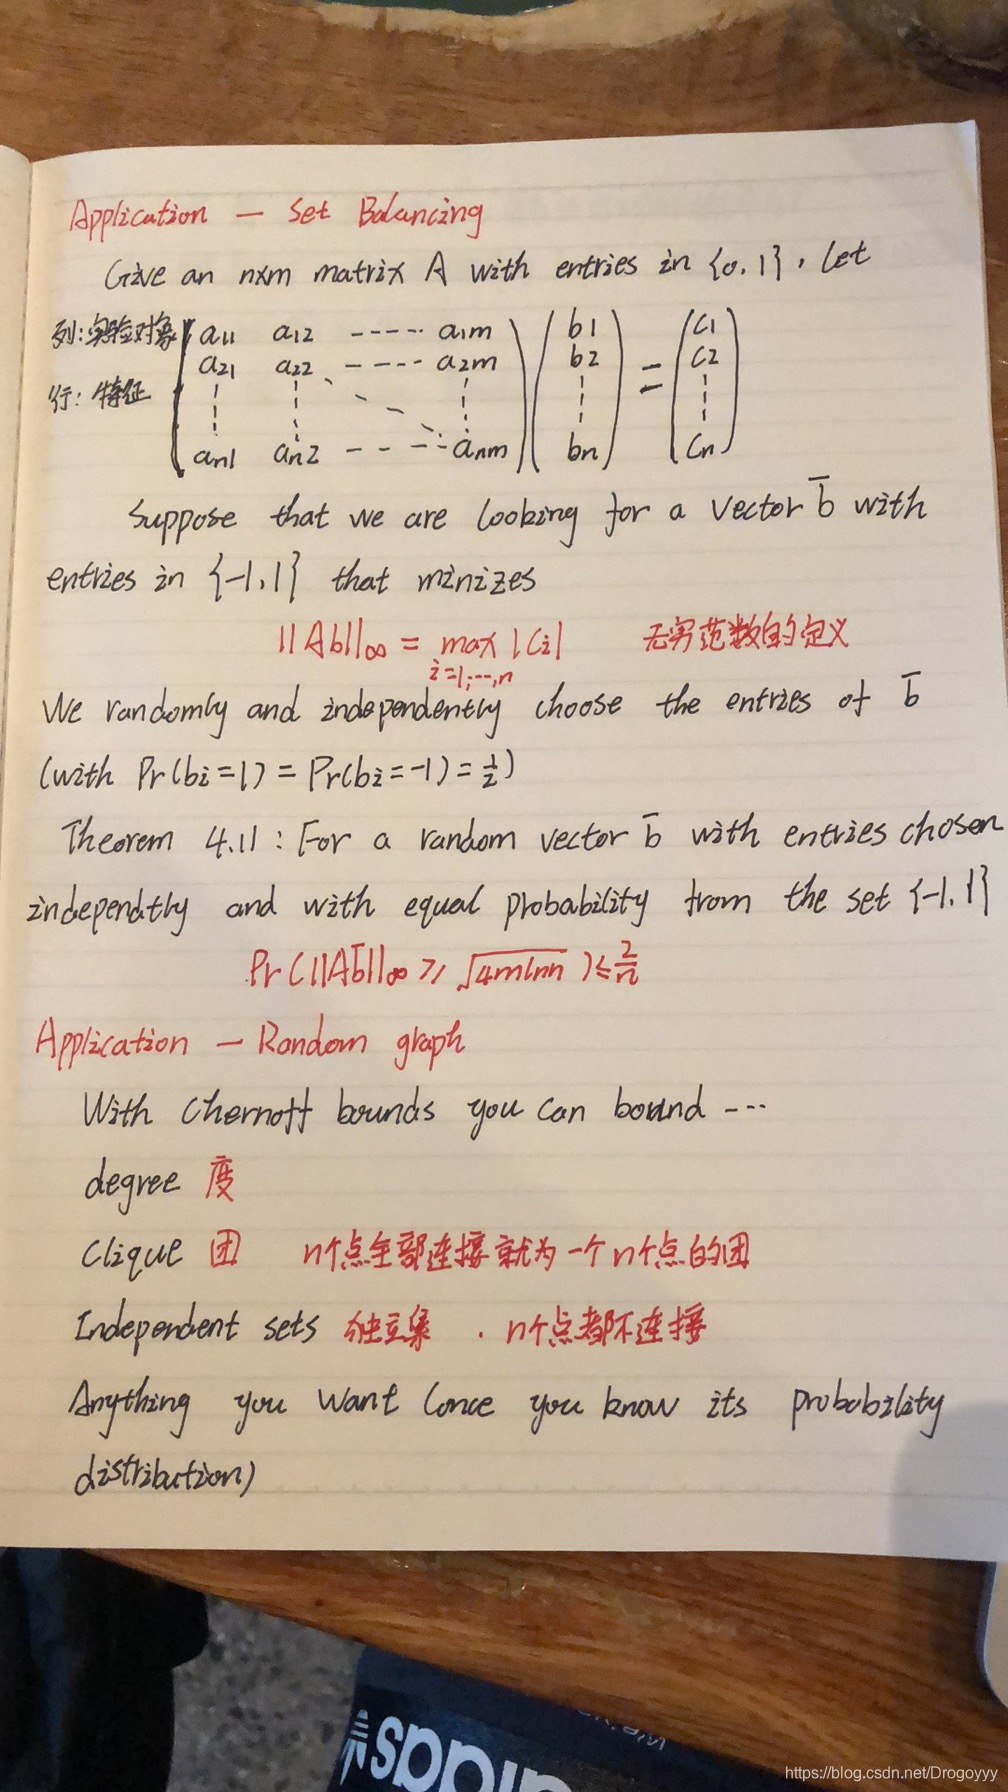 Application — Set Balancing
Give an nxm matrix A with entries in {0,1}, let
列:实验对象
行:特征
a11 a12 ---- a1m b1 c1
a21 a22 ---- a2m b2 = c2
an1 an2 ---- anm bn cn
Suppose that we are looking for a vector b̄ with
entries in {-1,1} that minizes
||Ab||∞ = max |Ci| 无穷范数的定义
i=1,...,n
We randomly and independently choose the entries of b̄
(with Pr(bi=1) = Pr(bi=-1) = 1/2)
Theorem 4.11 : For a random vector b̄ with entries chosen
independtly and with equal probability from the set {-1,1}
Pr(||Ab̄||∞ ≥ √4mlnn) ≤ 2/n
Application — Random graph
With Chernoff bounds you can bound ---
degree 度
Clique 团 n个点全部连接就为一个n个点的团
Independent sets 独立集 . n个点都不连接
Anything you want (once you know its probability
distribution)
adidas
https://blog.csdn.net/Drogoyyy